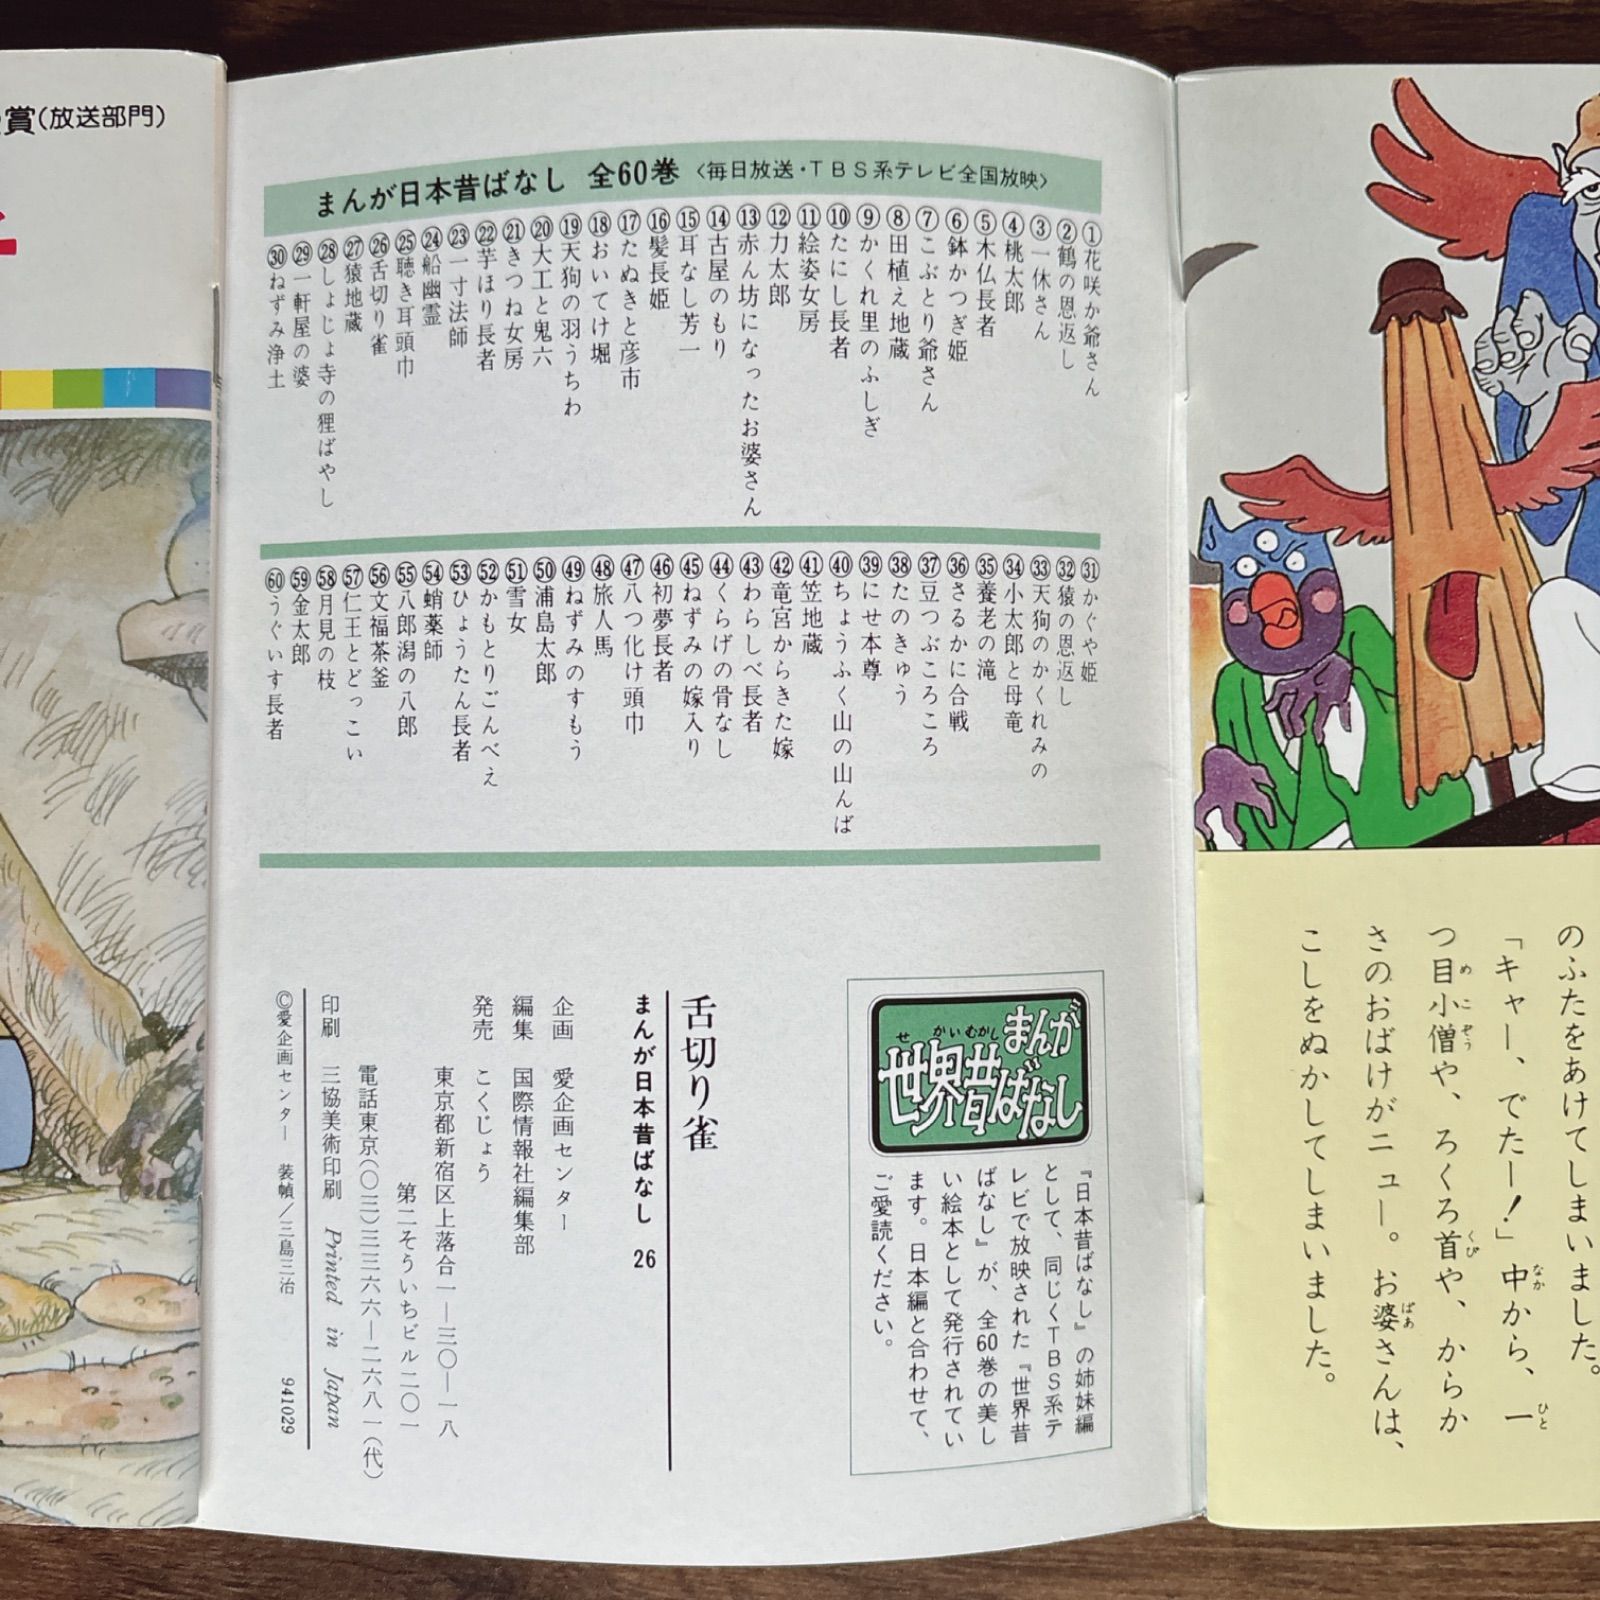 賞(放送部門)
まんが日本昔ばなし 全60巻〈毎日放送・TBS系テレビ全国放映〉
①花咲か爺さん
②鶴の恩返し
③一休さん
④桃太郎
⑤木仏長者
⑥鉢かつぎ姫
⑦こぶとり爺さん
⑧田植え地蔵
⑨かくれ里のふしぎ
⑩たにし長者
⑪絵姿女房
⑫力太郎
⑬赤ん坊になったお婆さん
⑭古屋のもり
⑮耳なし芳一
⑯髪長姫
⑰たぬきと彦市
⑱おいてけ堀
⑲天狗の羽うちわ
⑳大工と鬼六
㉑きつね女房
㉒芋ほり長者
㉓一寸法師
㉔船幽霊
㉕聴き耳頭巾
㉖舌切り雀
㉗猿地蔵
㉘しょじょ寺の狸ばやし
㉙一軒屋の婆
㉚ねずみ浄土
㉛かぐや姫
㉜猿の恩返し
㉝天狗のかくれみの
㉞小太郎と母竜
㉟養老の滝
㊱さるかに合戦
㊲豆つぶころころ
㊳たのきゅう
㊴にせ本尊
㊵ちょうふく山の山んば
㊶笠地蔵
㊷竜宮からきた嫁
㊸わらしべ長者
㊹くらげの骨なし
㊺ねずみの嫁入り
㊻初夢長者
㊼八つ化け頭巾
㊽旅人馬
㊾ねずみのすもう
㊿浦島太郎
51雪女
52かもとりごんべえ
53ひょうたん長者
54蛸薬師
55八郎潟の八郎
56文福茶釜
57仁王とどっこい
58月見の枝
59金太郎
60うぐいす長者
まんが
せかいむかし
世界昔ばなし
『日本昔ばなし』の姉妹編
として、同じくTBS系テ
レビで放映された『世界昔
ばなし』が、全60巻の美し
い絵本として発行されてい
ます。日本編と合わせて、
ご愛読ください。
舌切り雀
まんが日本昔ばなし 26
企画 愛企画センター
編集 国際情報社編集部
発売 こくじょう
東京都新宿区上落合一―三〇―一八
第二そういちビル二〇一
電話東京(〇三)三三六六―二六八一(代)
印刷 三協美術印刷 Printed in Japan
©愛企画センター 装幀/三島三治 941029
のふたをあけてしまいました。
「キャー、でたー!」中から、一
つ目小僧や、ろくろ首や、からか
さのおばけがニュー。お婆さんは、
こしをぬかしてしまいました。